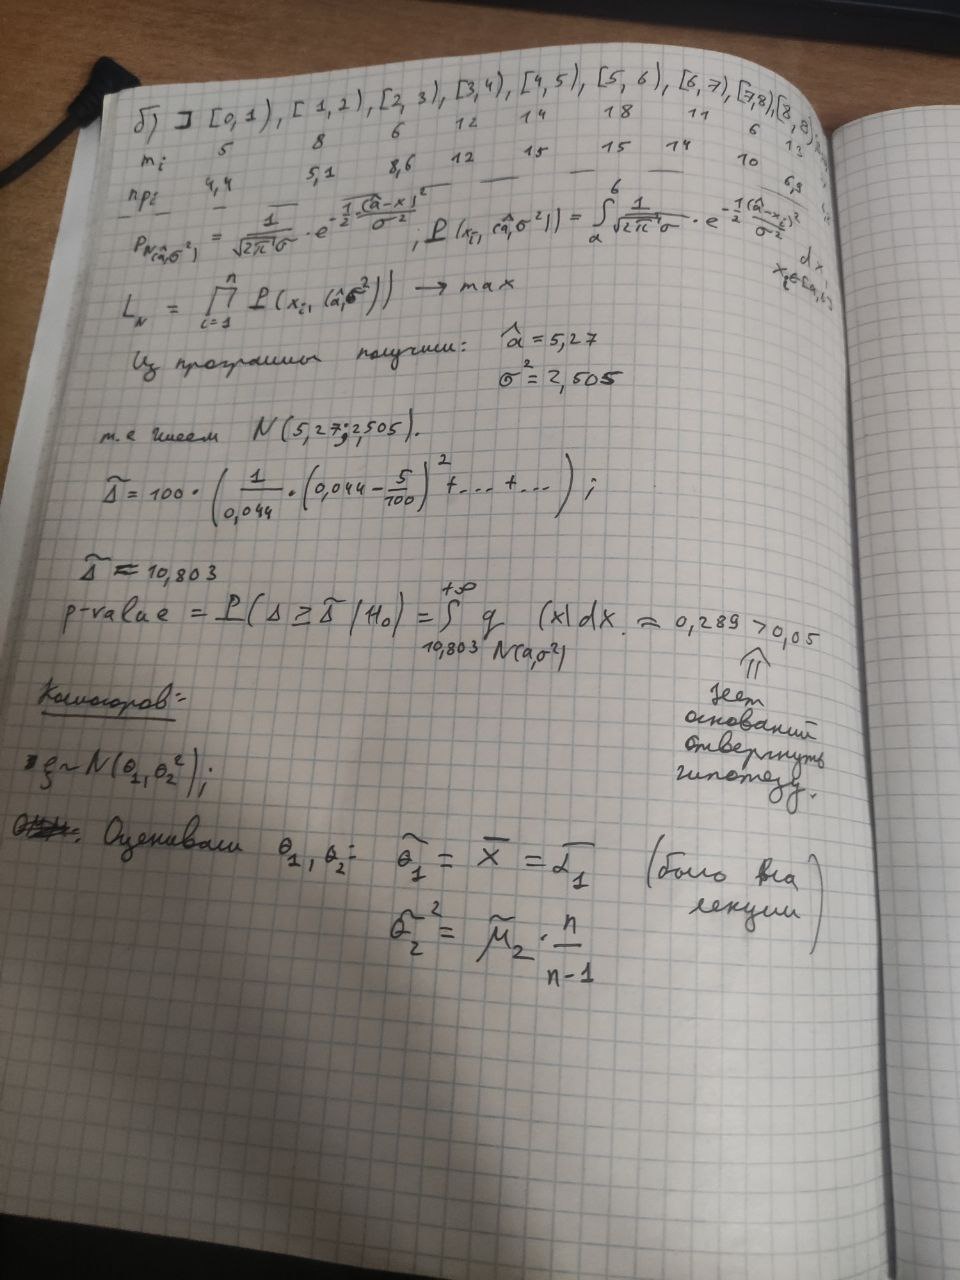 б) ∃ [0, 1), [1, 2), [2, 3), [3, 4), [4, 5), [5, 6), [6, 7), [7, 8), [8,
mᵢ 5 8 6 12 14 18 11 6 13
npᵢ 4,4 5,1 8,6 12 15 15 14 10 6,9
P_N(â,σ²) = 1/(√2π σ) · e^(-1/2 (â-x)²/σ²) ; P(xᵢ, (â,σ²)) = ∫ₐ⁶ 1/(√2π σ) · e^(-1/2 (â-xᵢ)²/σ²) dx,
L_N = ∏ᵢ₌₁ⁿ P(xᵢ, (â,σ²)) → max
Из программы получили: â = 5,27
σ² = 2,505
т.е имеем N(5,27; 2,505).
Δ̃ = 100 · (1/0,044 · (0,044 - 5/100)² + ... + ...) ;
Δ̃ ≈ 10,803
p-value = P(Δ ≥ Δ̃ | H₀) = ∫_10,803^+∞ q_N(a,σ²) (x) dx ≈ 0,289 > 0,05
⇑
нет
оснований
отвергнуть
гипотезу.
Колмогоров:
ξ ~ N(θ₁, θ₂²);
Оценивали θ₁, θ₂: θ̃₁ = x̄ = α̅₁ (было на
лекции)
θ̃₂² = μ̃₂ · n/(n-1)